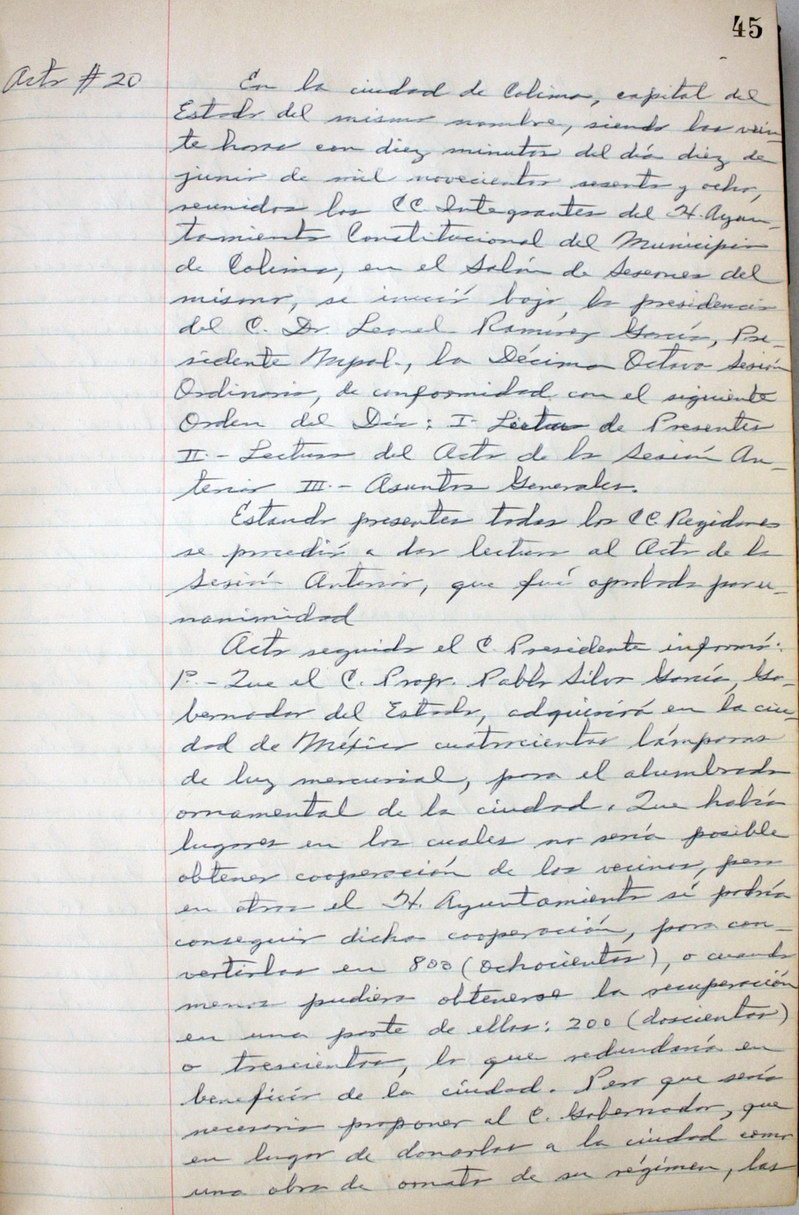 45
Acta #20
En la ciudad de Colima, capital del
Estado del mismo nombre, siendo las vein-
te horas con diez minutos del día diez de
junio de mil novecientos sesenta y ocho,
reunidos los CC. Integrantes del H. Ayun-
tamiento Constitucional del Municipio
de Colima, en el Salón de Sesiones del
mismo, se inició bajo la presidencia
del C. Dr. Leonel Ramírez García, Pre-
sidente Mpal., la Décima Octava Sesión
Ordinaria, de conformidad con el siguiente
Orden del Día: I- Lectura de Presentes
II.- Lectura del Acta de la Sesión An-
terior III.- Asuntos Generales.
Estando presentes todos los CC. Regidores
se procedió a dar lectura al Acta de la
Sesión Anterior, que fué aprobada por u-
nanimidad
Acto seguido el C. Presidente informó:
1º.- Que el C. Profr. Pablo Silva García, Go-
bernador del Estado, adquirirá en la ciu-
dad de México cuatrocientas lámparas
de luz mercurial, para el alumbrado
ornamental de la ciudad. Que había
lugares en los cuales no sería posible
obtener cooperación de los vecinos, pero
en otros el H. Ayuntamiento sí podría
conseguir dicha cooperación, para con-
vertirlas en 800 (ochocientas), o cuando
menos pudiera obtenerse la recuperación
en una parte de ellas: 200 (doscientas)
o trescientas, lo que redundaría en
beneficio de la ciudad. Pero que sería
necesario proponer al C. Gobernador, que
en lugar de donarlas a la ciudad como
una obra de ornato de su régimen, las